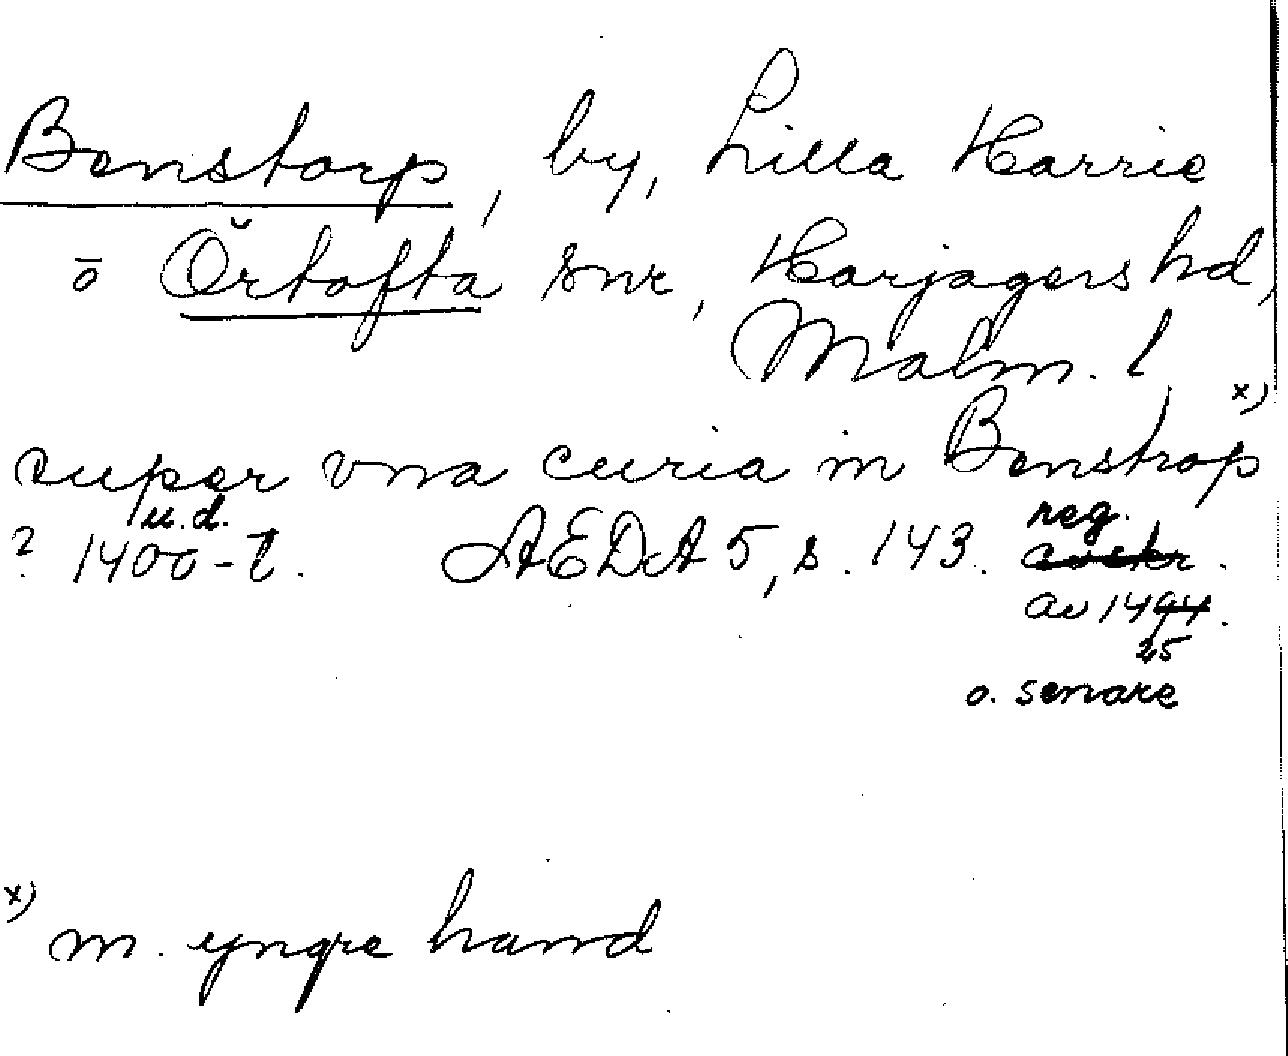 Benstorp, by, Lilla Harrie
o Örtofta snr, Harjagers hd,
Malm. l
super vna curia in Benstrop x)
u.d. reg.
? 1400-t. AEDA 5, s. 143. avskr.
av 1494.
25
o. senare
x) m. yngre hand